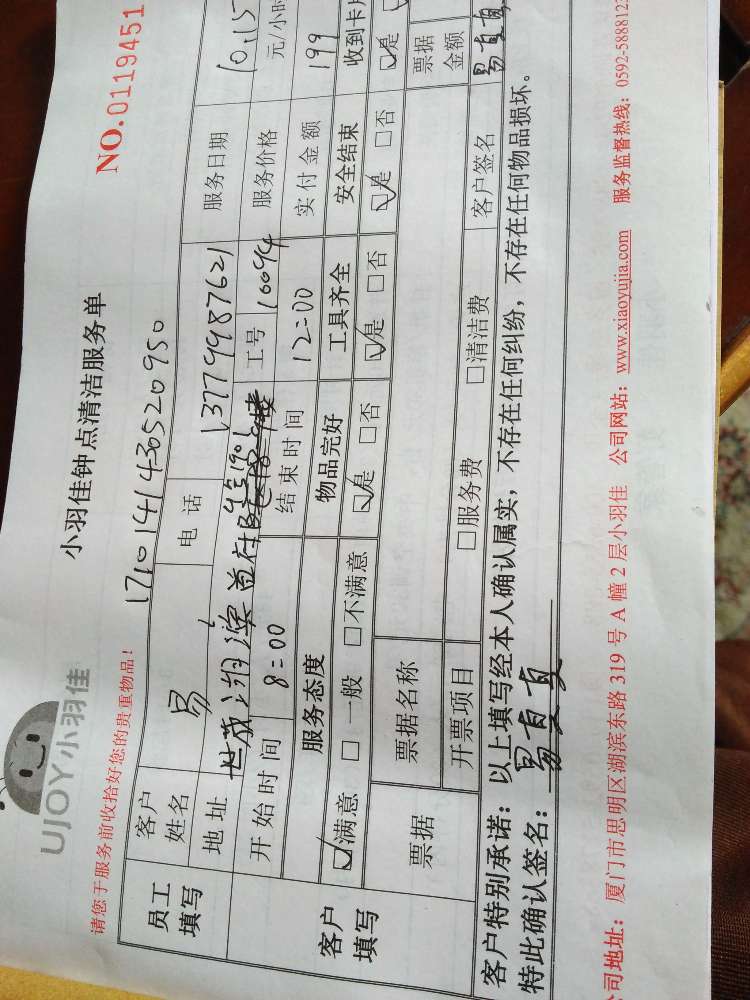 UJOY小羽佳
小羽佳钟点清洁服务单
NO.0119451
请您于服务前收拾好您的贵重物品!
1710141430520950
员工填写
客户姓名 易 电话 13779987621 服务日期 10.15
地址 世茂上海湾 工号 10094 服务价格 元/小时
开始时间 8=00 结束时间 12=00 实付金额 199
客户填写
服务态度 物品完好 工具齐全 安全结束 收到卡片
☑满意 □一般 □不满意 ☑是 □否 ☑是 □否 ☑是 □否 ☑是
票据 票据名称 票据金额
开票项目 □服务费 □清洁费 客户签名 易真真
客户特别承诺:以上填写经本人确认属实,不存在任何纠纷,不存在任何物品损坏。
特此确认签名: 易真真
公司地址:厦门市思明区湖滨东路 319 号 A 幢 2 层小羽佳 公司网站:www.xiaoyujia.com 服务监督热线:0592-5888123